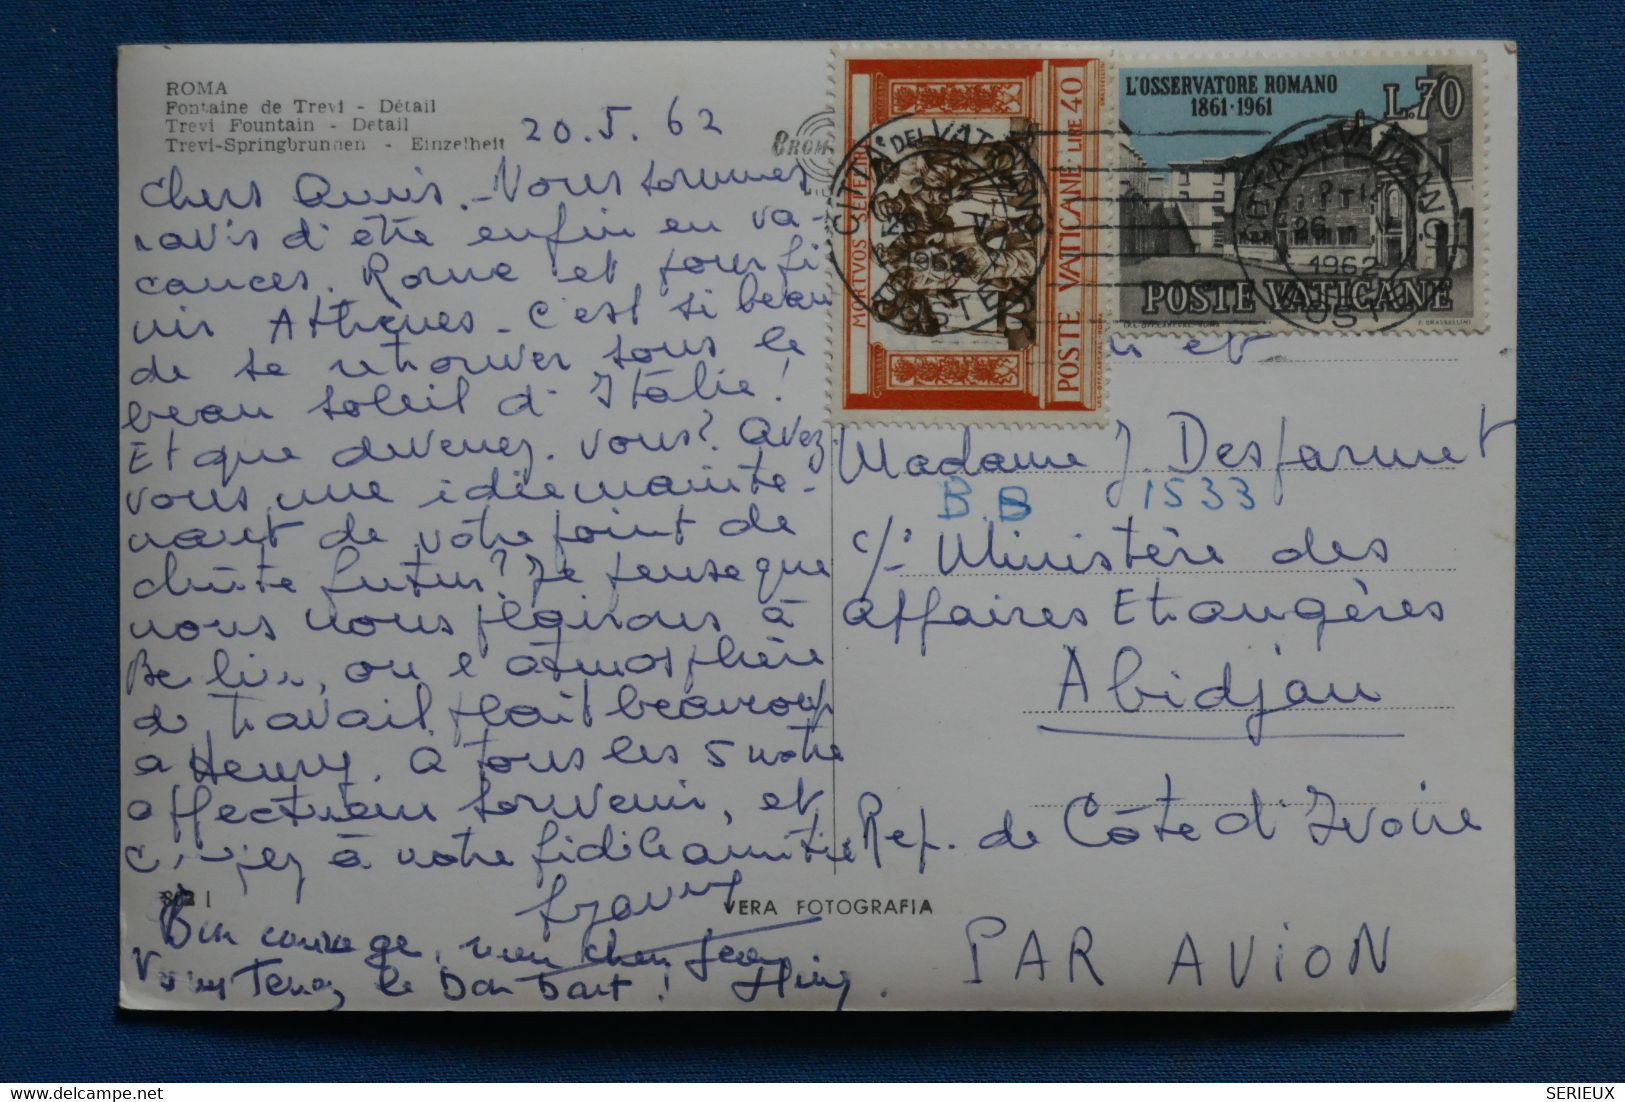 ROMA
Fontaine de Trevi - Détail
Trevi Fountain - Detail
Trevi-Springbrunnen - Einzelheit
20.5.62
Chers Amis. Vous sommes
ravis d'être enfin en va-
cances. Rome et pour fi
nir Athènes. C'est si beau
de se retrouver sous le
beau soleil d'Italie!
Et que devenez-vous? Avez-
vous une idée mainte-
nant de votre point de
chute futur? Je pense que
nous nous plairons à
Berlin, où l'atmosphère
de travail plaît beaucoup
a Henry. A tous les 5 notre
affectueux souvenir, et
à notre fidèle amitié
802 I
Bon courage, mon cher Jean
Tenez le bon bout! Henry.
VERA FOTOGRAFIA
MORTVOS SEPELIRE
POSTE VATICANE LIRE 40
L'OSSERVATORE ROMANO
1861-1961
L.70
POSTE VATICANE
CITTA DEL VATICANO
POSTE
26
1962
et
Madame J. Desfarmet
B.B 1533
c/o Ministère des
affaires Etrangères
Abidjan
Rep. de Côte d'Ivoire
PAR AVION
SERIEUX